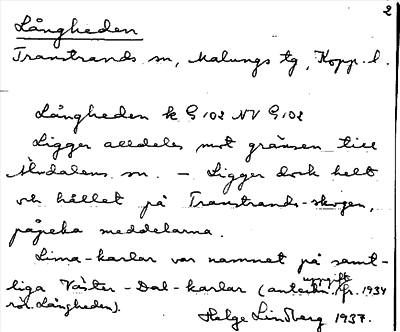 2
Långheden
Transtrands sn, Malungs tg, Kopp. l.
Långheden k G 102 NV G 102
Ligger alldeles mot gränsen till
Älvdalens sn. – Ligger dock helt
och hållet på Transtrands-skogen,
påpeka meddelarna.
Lima-karlar var namnet på samt-
liga Väster-Dal-karlar (anteckn. uppgift fr. 1934
rör. Långheden).
Helge Lindberg 1937.